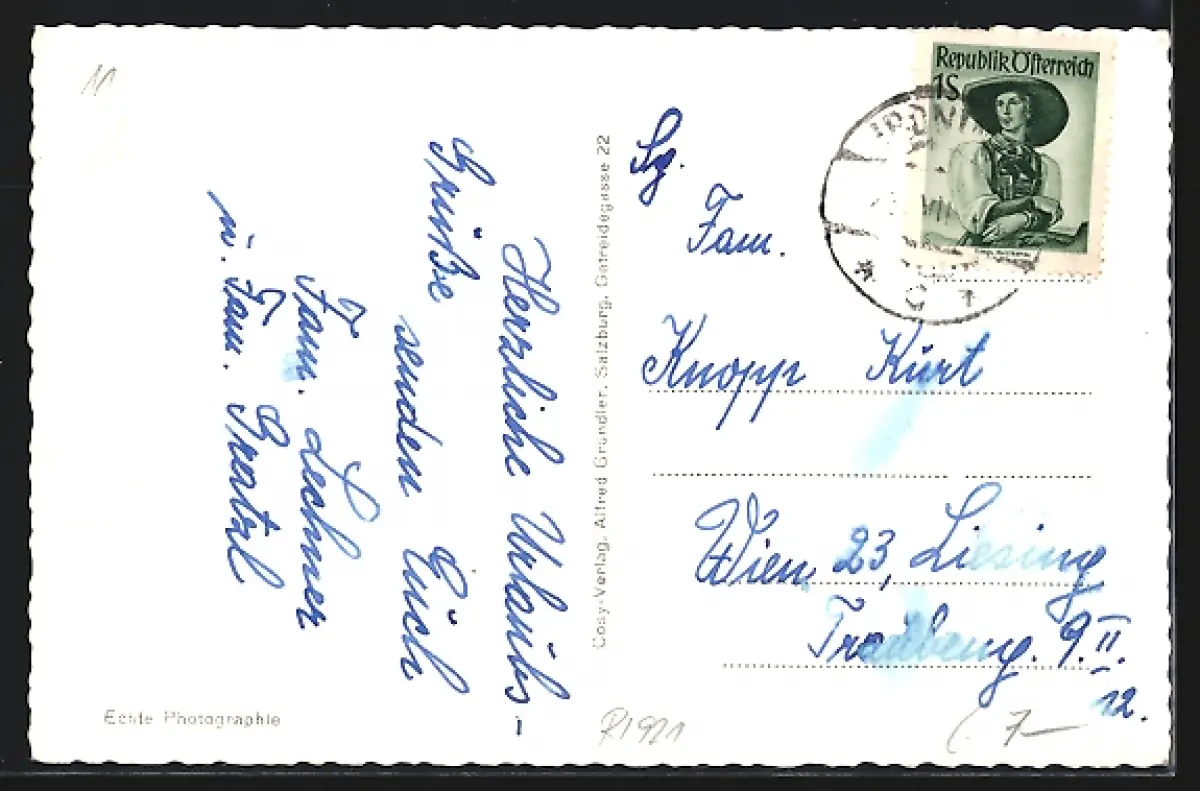 Herzliche Urlaubs-
Grüße
senden Euch
Fam. Lechner
u. Fam. Gratzl
Cosy-Verlag, Alfred Gründler, Salzburg, Getreidegasse 22
Echte Photographie
Republik Österreich
1S
Sg.
Fam.
Knopp Kurt
Wien 23, Liesing
9.II.
12.
R1921
7—